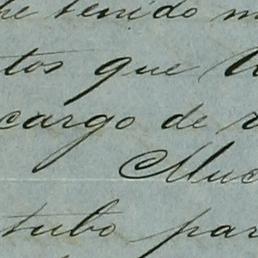 he tenido m
tos que
cargo de
Muc
tubo par